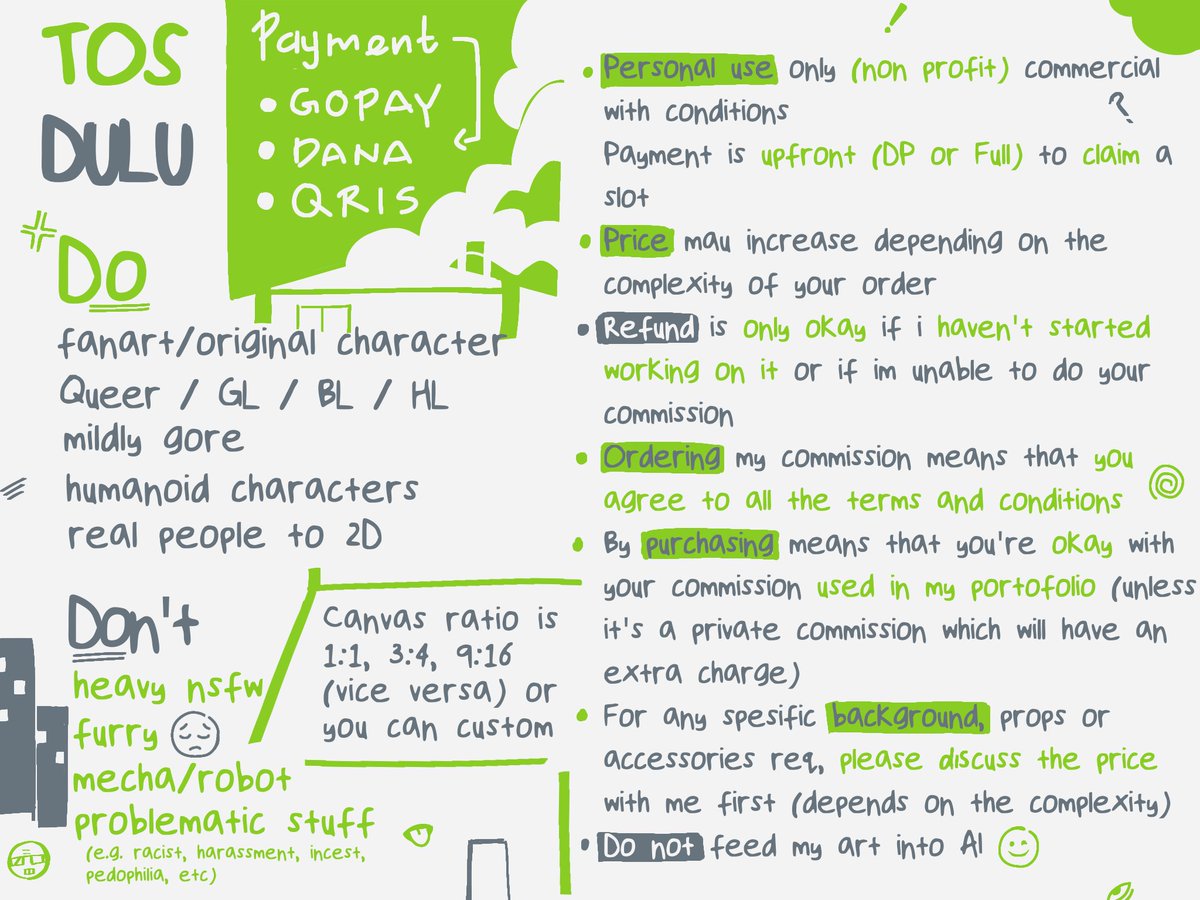 TOS
DULU
Payment
• GOPAY
• DANA
• QRIS
Do
fanart/original character
Queer / GL / BL / HL
mildly gore
humanoid characters
real people to 2D
Don't
heavy nsfw
furry
mecha/robot
problematic stuff
(e.g. racist, harassment, incest,
pedophilia, etc)
Canvas ratio is
1:1, 3:4, 9:16
(vice versa) or
you can custom
• Personal use only (non profit) commercial
with conditions
Payment is upfront (DP or Full) to claim a
slot
• Price mau increase depending on the
complexity of your order
• Refund is only okay if i haven't started
working on it or if im unable to do your
commission
• Ordering my commission means that you
agree to all the terms and conditions
• By purchasing means that you're okay with
your commission used in my portofolio (unless
it's a private commission which will have an
extra charge)
• For any spesific background, props or
accessories req, please discuss the price
with me first (depends on the complexity)
• Do not feed my art into AI